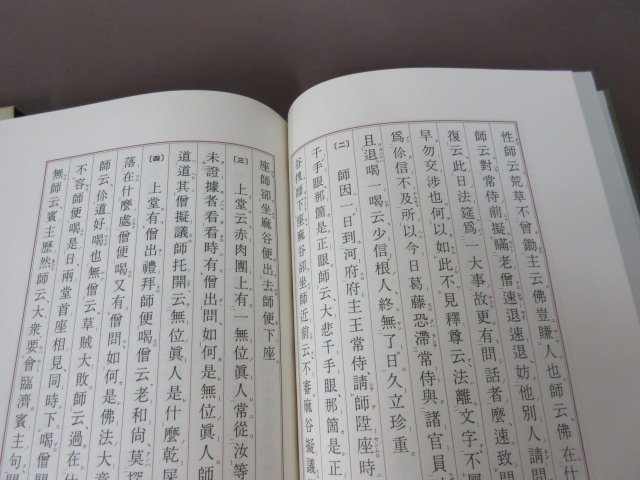 性師云荒草不曾鋤主云佛豈賺人也師云佛在什
師云對常侍前擬瞞老僧速退速退妨他別人請問
復云此日法筵爲一大事故更有問話者麼速致問
早勿交渉也何以如此不見釋尊云法離文字不屬
爲你信不及所以今日葛藤恐滯常侍與諸官員
且退喝一喝云少信根人終無了日久立珍重
〔二〕師因一日到河府府主王常侍請師陞座時
千手眼那箇是正眼師云大悲千手眼那箇是正
谷拽師下座麻谷却坐師近前云不審麻谷擬議
座師却坐麻谷便出去師便下座
〔三〕上堂云赤肉團上有一無位眞人常從汝等
未證據者看看時有僧出問如何是無位眞人師
道道其僧擬議師托開云無位眞人是什麼乾屎
〔四〕上堂有僧出禮拜師便喝僧云老和尚莫探
落在什麼處僧便喝又有僧問如何是佛法大意
師云你道好喝也無僧云草賊大敗師云過在
不容師便喝是日兩堂首座相見同時下喝僧問
無師云賓主歷然師云大衆要會臨濟賓主句問